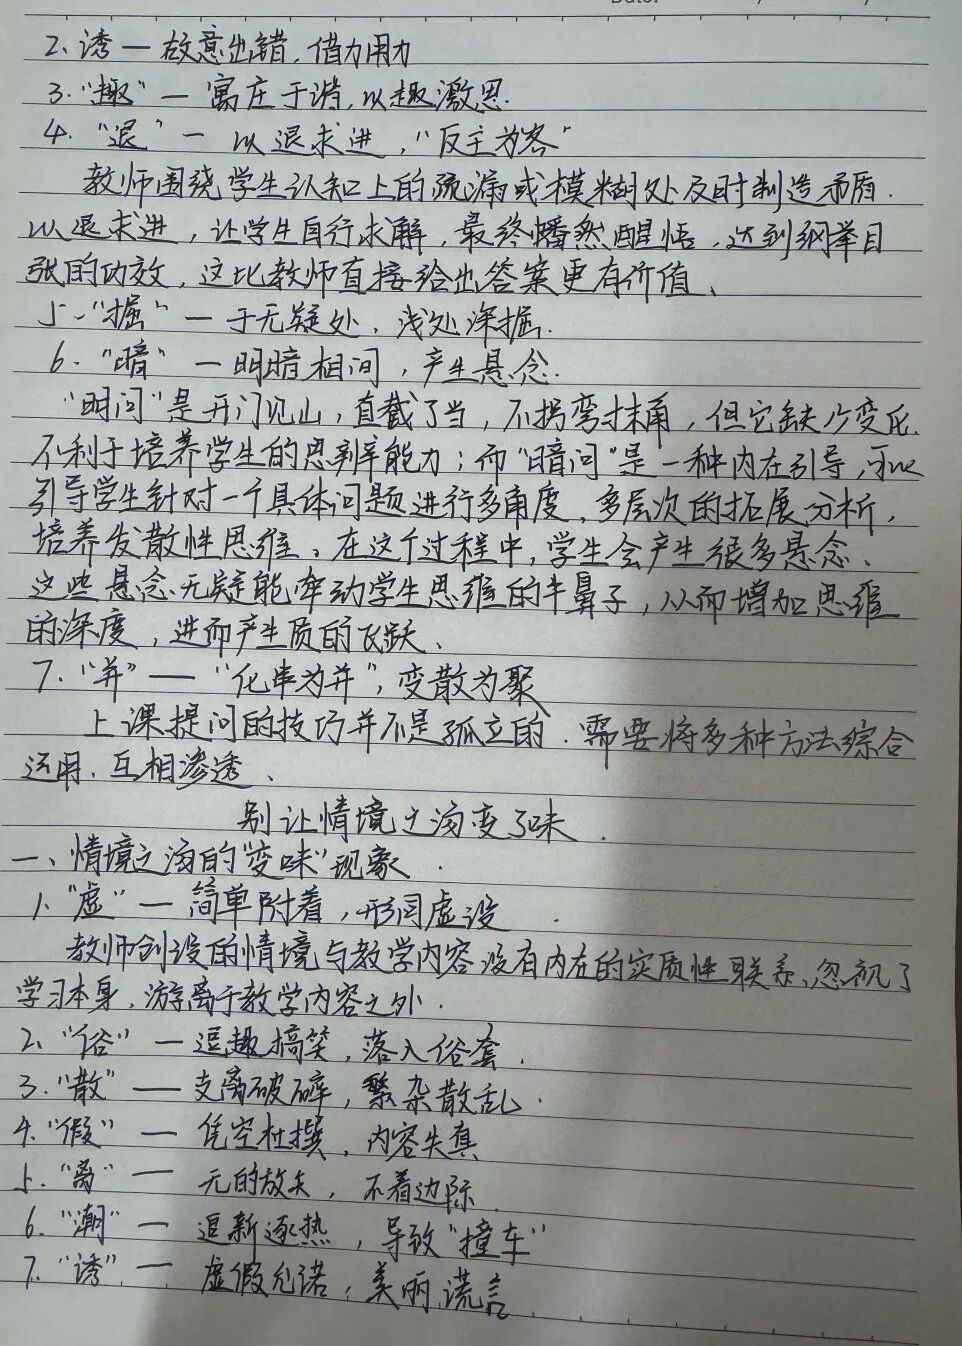 2、诱 — 故意出错，借力用力
3.“趣” — 寓庄于谐，以趣激思.
4.“退” — 以退求进，“反主为客”
教师围绕学生认知上的疏漏或模糊处及时制造矛盾.
以退求进，让学生自行求解，最终幡然醒悟，达到纲举目
张的功效，这比教师直接给出答案更有价值、
5、“掘” — 于无疑处，浅处深掘.
6.“暗” — 明暗相间，产生悬念.
“明问”是开门见山，直截了当，不拐弯抹角，但它缺少变化.
不利于培养学生的思辨能力；而“暗问”是一种内在引导，可以
引导学生针对一个具体问题进行多角度，多层次的拓展分析，
培养发散性思维、在这个过程中，学生会产生很多悬念、
这些悬念无疑能牵动学生思维的牛鼻子，从而增加思维
的深度，进而产生质的飞跃、
7.“并” — “化串为并”，变散为聚
上课提问的技巧并不是孤立的.需要将多种方法综合
运用，互相渗透、
别让情境之汤变了味.
一、情境之汤的“变味”现象.
1、“虚” — 简单附着，形同虚设.
教师创设的情境与教学内容没有内在的实质性联系，忽视了
学习本身，游离于教学内容之外.
2、“俗” — 逗趣搞笑，落入俗套.
3.“散” — 支离破碎，繁杂散乱.
4.“假” — 凭空杜撰，内容失真
5.“离” — 无的放矢，不着边际
6.“潮” — 追新逐热，导致“撞车”
7.“诱” — 虚假允诺，美丽谎言